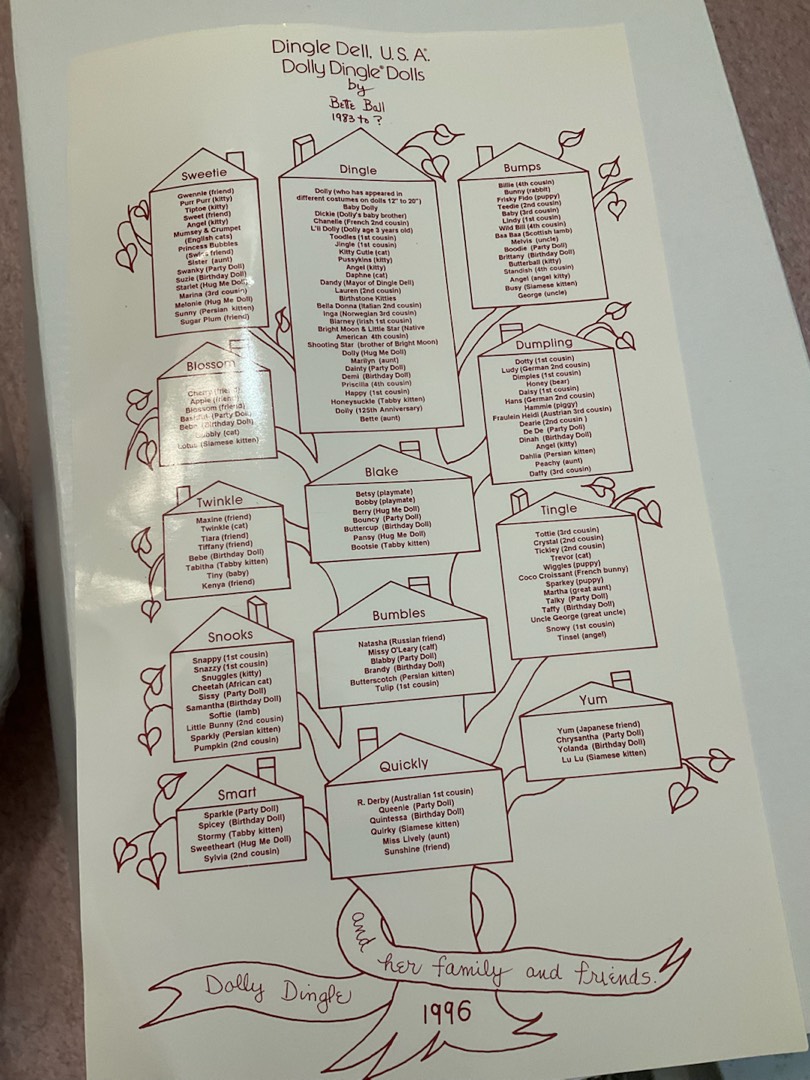 Dingle Dell, U.S.A.®
Dolly Dingle® Dolls
by
Bette Ball
1983 to ?
Sweetie
Gwennie (friend)
Purr Purr (kitty)
Tiptoe (kitty)
Sweet (friend)
Angel (kitty)
Mumsey & Crumpet
(English cats)
Princess Bubbles
friend)
Sister (aunt)
Swanky (Party Doll)
Suzie (Birthday Doll)
Starlet (Hug Me Doll)
Marina (3rd cousin)
Melonie (Hug Me Doll)
Sunny (Persian kitten)
Sugar Plum (friend)
Dingle
Dolly (who has appeared in
different costumes on dolls 12" to 20")
Baby Dolly
Dickie (Dolly's baby brother)
Chanelle (French 2nd cousin)
L'il Dolly (Dolly age 3 years old)
Toodles (1st cousin)
Jingle (1st cousin)
Kitty Cutie (cat)
Pussykins (kitty)
Angel (kitty)
Daphne (cat)
Dandy (Mayor of Dingle Dell)
Lauren (2nd cousin)
Birthstone Kitties
Bella Donna (Italian 2nd cousin)
Inga (Norwegian 3rd cousin)
Blarney (Irish 1st cousin)
Bright Moon & Little Star (Native
American 4th cousin)
Shooting Star (brother of Bright Moon)
Dolly (Hug Me Doll)
Marilyn (aunt)
Dainty (Party Doll)
Demi (Birthday Doll)
Priscilla (4th cousin)
Happy (1st cousin)
Honeysuckle (Tabby kitten)
Dolly (125th Anniversary)
Bette (aunt)
Bumps
Billie (4th cousin)
Bunny (rabbit)
Frisky Fido (puppy)
Teedie (2nd cousin)
Baby (3rd cousin)
Lindy (1st cousin)
Wild Bill (4th cousin)
Baa Baa (Scottish lamb)
Melvis (uncle)
Boodie (Party Doll)
Brittany (Birthday Doll)
Butterball (kitty)
Standish (4th cousin)
Angel (angel kitty)
Busy (Siamese kitten)
George (uncle)
Blossom
Cherry (friend)
Apple (friend)
Blossom (friend)
Bashful (Party Doll)
Bebe (Birthday Doll)
(cat)
Lotus (Siamese kitten)
Dumpling
Dotty (1st cousin)
Ludy (German 2nd cousin)
Dimples (1st cousin)
Honey (bear)
Daisy (1st cousin)
Hans (German 2nd cousin)
Hammie (piggy)
Fraulein Heidi (Austrian 3rd cousin)
Dearie (2nd cousin )
De De (Party Doll)
Dinah (Birthday Doll)
Angel (kitty)
Dahlia (Persian kitten)
Peachy (aunt)
Daffy (3rd cousin)
Blake
Betsy (playmate)
Bobby (playmate)
Berry (Hug Me Doll)
Bouncy (Party Doll)
Buttercup (Birthday Doll)
Pansy (Hug Me Doll)
Bootsie (Tabby kitten)
Twinkle
Maxine (friend)
Twinkle (cat)
Tiara (friend)
Tiffany (friend)
Bebe (Birthday Doll)
Tabitha (Tabby kitten)
Tiny (baby)
Kenya (friend)
Tingle
Tottie (3rd cousin)
Crystal (2nd cousin)
Tickley (2nd cousin)
Trevor (cat)
Wiggles (puppy)
Coco Croissant (French bunny)
Sparkey (puppy)
Martha (great aunt)
Talky (Party Doll)
Taffy (Birthday Doll)
Uncle George (great uncle)
Snowy (1st cousin)
Tinsel (angel)
Bumbles
Natasha (Russian friend)
Missy O'Leary (calf)
Blabby (Party Doll)
Brandy (Birthday Doll)
Butterscotch (Persian kitten)
Tulip (1st cousin)
Snooks
Snappy (1st cousin)
Snazzy (1st cousin)
Snuggles (kitty)
Cheetah (African cat)
Sissy (Party Doll)
Samantha (Birthday Doll)
Softie (lamb)
Little Bunny (2nd cousin)
Sparkly (Persian kitten)
Pumpkin (2nd cousin)
Yum
Yum (Japanese friend)
Chrysantha (Party Doll)
Yolanda (Birthday Doll)
Lu Lu (Siamese kitten)
Quickly
R. Derby (Australian 1st cousin)
Queenie (Party Doll)
Quintessa (Birthday Doll)
Quirky (Siamese kitten)
Miss Lively (aunt)
Sunshine (friend)
Smart
Sparkle (Party Doll)
Spicey (Birthday Doll)
Stormy (Tabby kitten)
Sweetheart (Hug Me Doll)
Sylvia (2nd cousin)
Dolly Dingle
and her family and friends.
1996